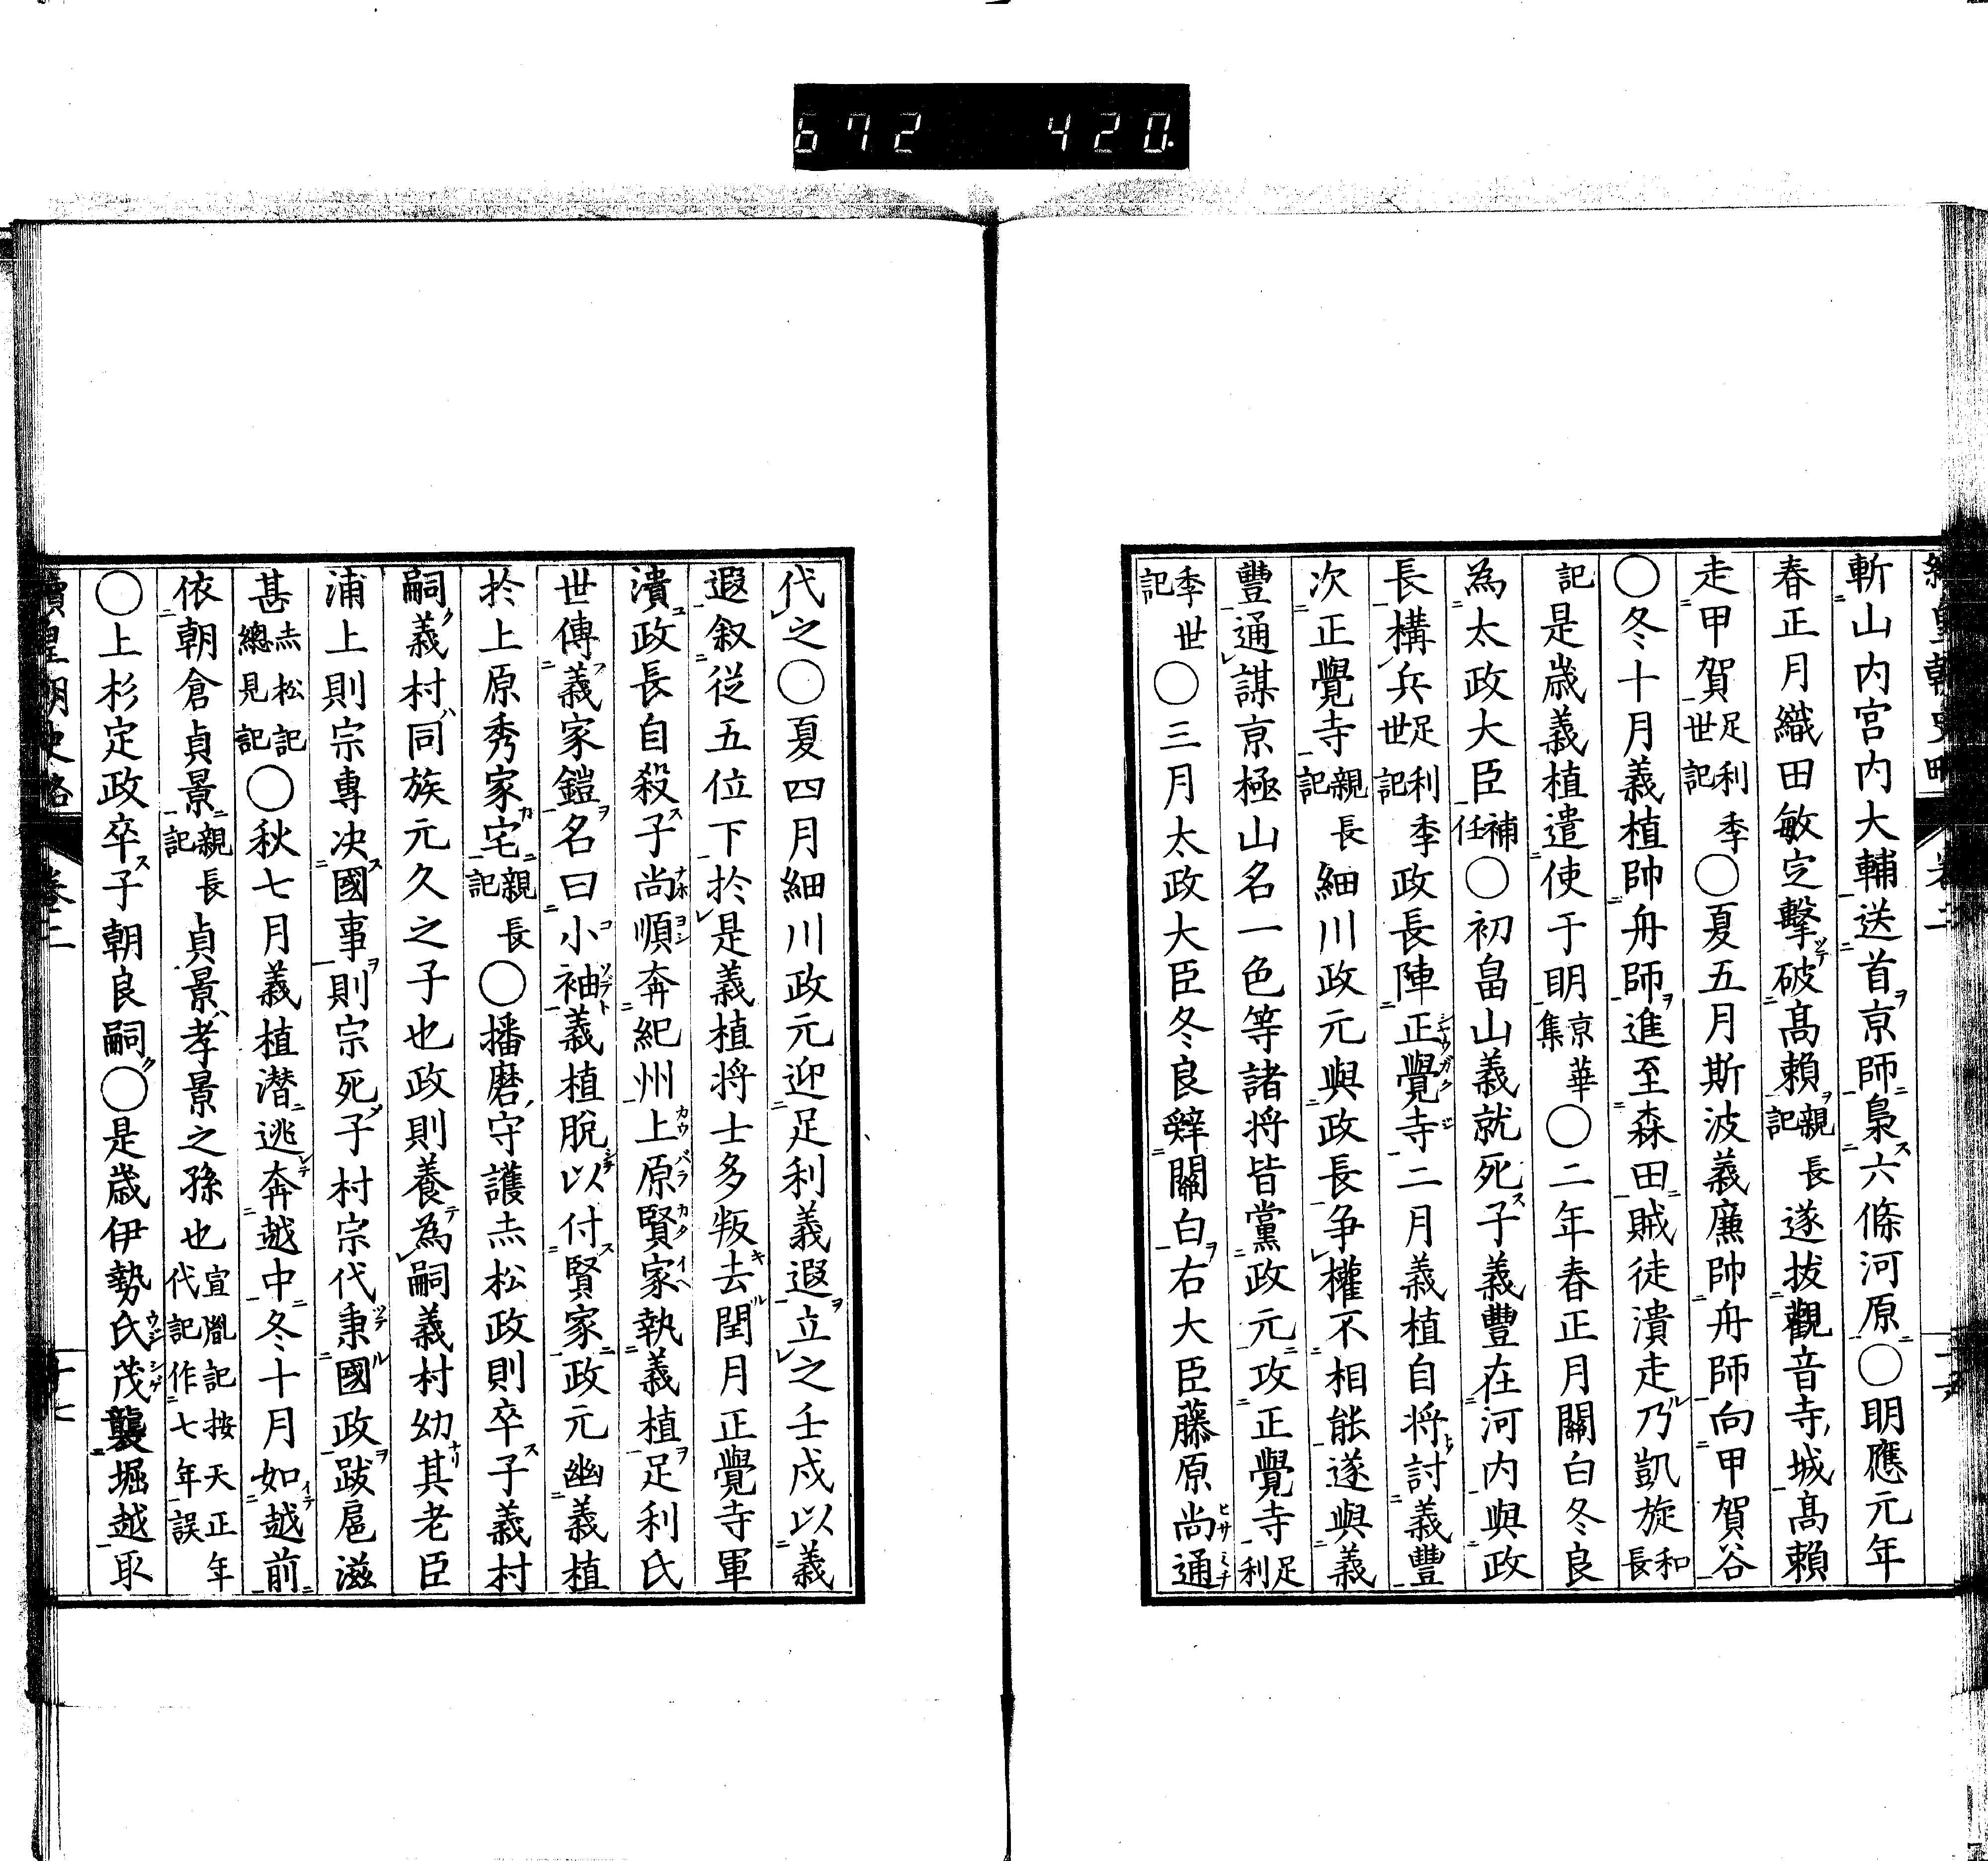 672 420.
續皇朝史略 卷二
斬山内宮内大輔送首京師梟六條河原○明應元年
春正月織田敏定擊破高賴親長記遂拔觀音寺城高賴
走甲賀足利季世記○夏五月斯波義廉帥舟師向甲賀谷
○冬十月義植帥舟師進至森田賊徒潰走乃凱旋和長
記是歳義植遣使于明京華集○二年春正月關白冬良
為太政大臣補任○初畠山義就死子義豐在河内與政
長構兵足利季世記政長陣正覺寺二月義植自将討義豐
次正覺寺親長記細川政元與政長争權不相能遂與義
豐通謀京極山名一色等諸将皆黨政元攻正覺寺足利
季世記○三月太政大臣冬良辭關白右大臣藤原尚通
代之○夏四月細川政元迎足利義遐立之壬戌以義
遐叙從五位下於是義植将士多叛去閏月正覺寺軍
潰政長自殺子尚順奔紀州上原賢家執義植足利氏
世傳義家鎧名曰小袖義植脫以付賢家政元幽義植
於上原秀家宅親長記○播磨守護赤松政則卒子義村
嗣義村同族元久之子也政則養為嗣義村幼其老臣
浦上則宗專决國事則宗死子村宗代秉國政跋扈滋
甚赤松記總見記○秋七月義植潜逃奔越中冬十月如越前
依朝倉貞景親長記貞景孝景之孫也宣胤記按天正年代記作七年誤
○上杉定政卒子朝良嗣○是歳伊勢氏茂襲堀越取
續皇朝史略 卷二 十七